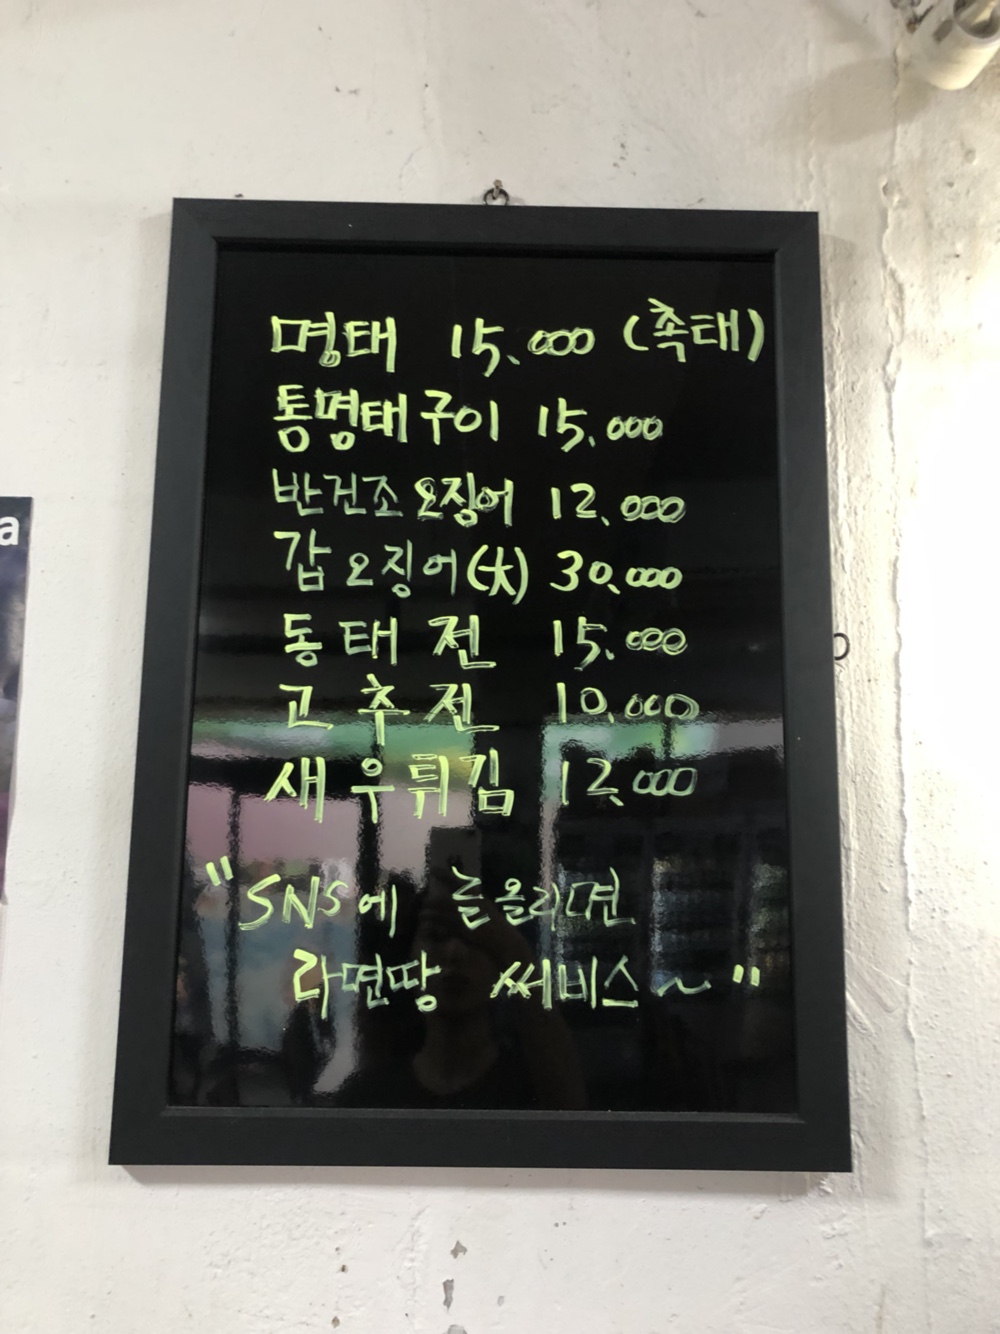 명태 15.000 (촉태)
통명태구이 15.000
반건조 오징어 12.000
갑오징어(大) 30.000
동태전 15.000
고추전 10.000
새우튀김 12.000
"SNS에 늘올리면
라면땅 써비스~"
a